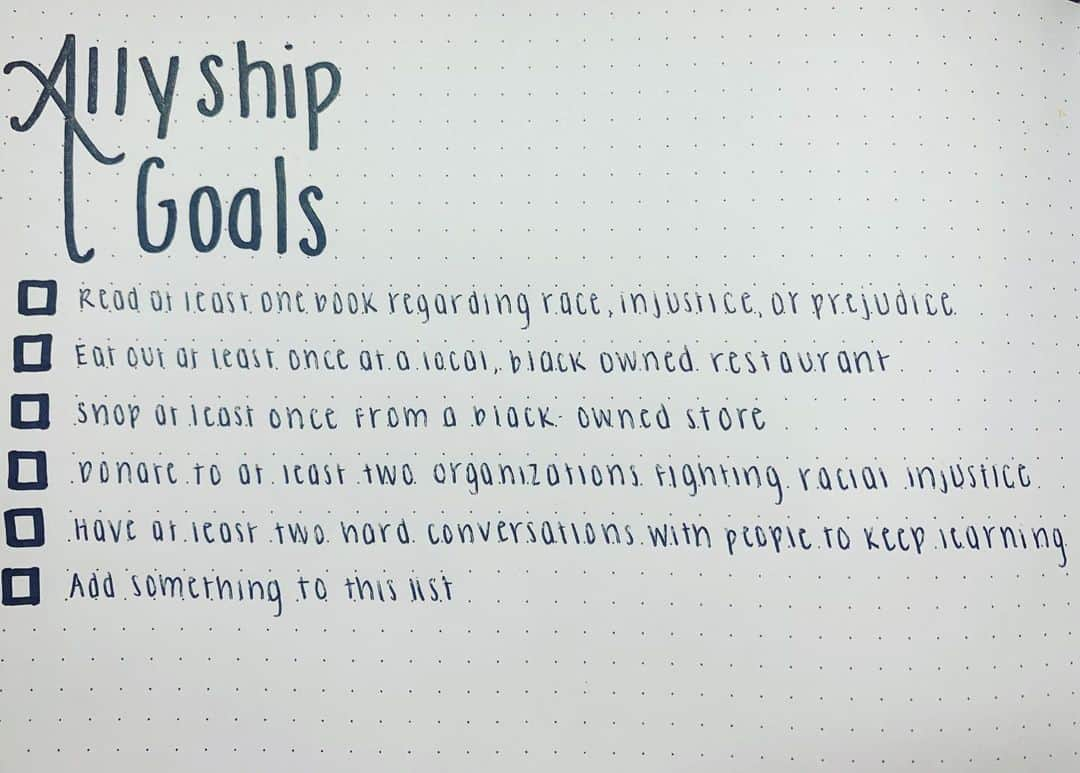 Allyship
Goals
Read at least one book regarding race, injustice, or prejudice
Eat out at least once at a local, black owned restaurant
Shop at least once from a black-owned store
Donate to at least two organizations fighting racial injustice
Have at least two hard conversations with people to keep learning
Add something to this list